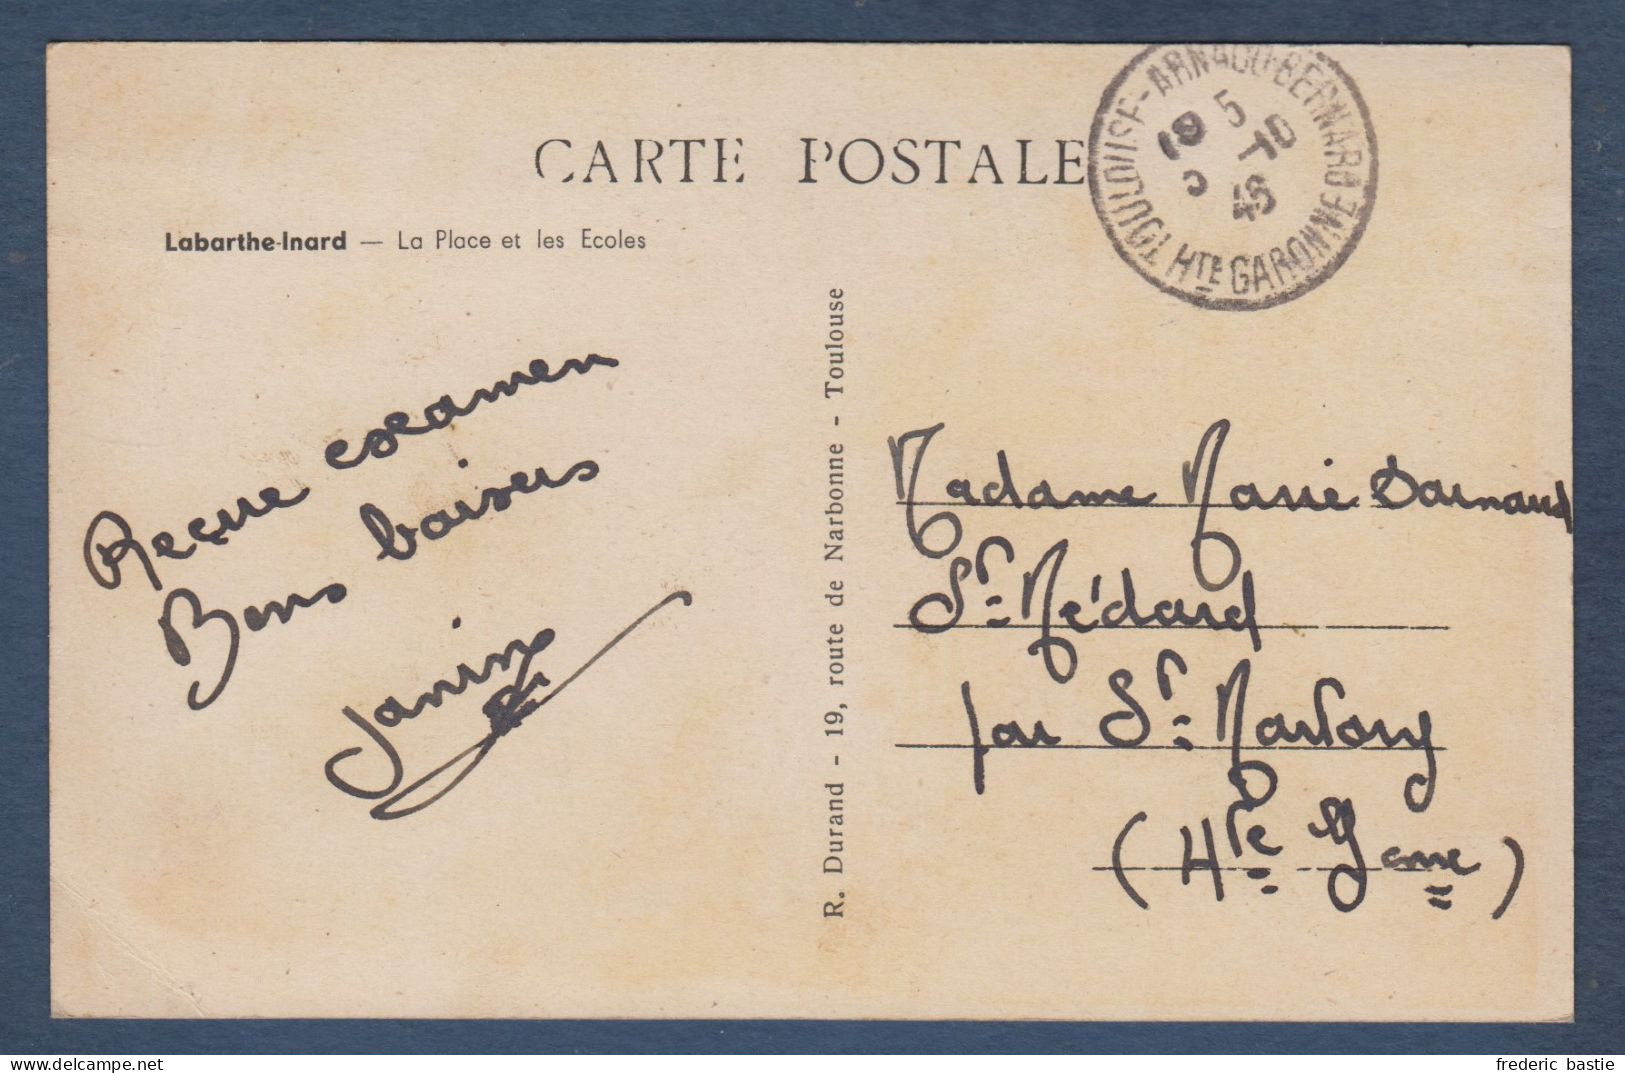 CARTE POSTALE
Labarthe-Inard — La Place et les Ecoles
TOULOUSE-ARNAUD-BERNARD
5 -10
HTE GARONNE
R. Durand - 19, route de Narbonne - Toulouse
Reçue examen
Bons baisers
Janine
Madame Marie Darnaud
St- Médard
par St- Martory
(Hte Gnne)
frederic bastie